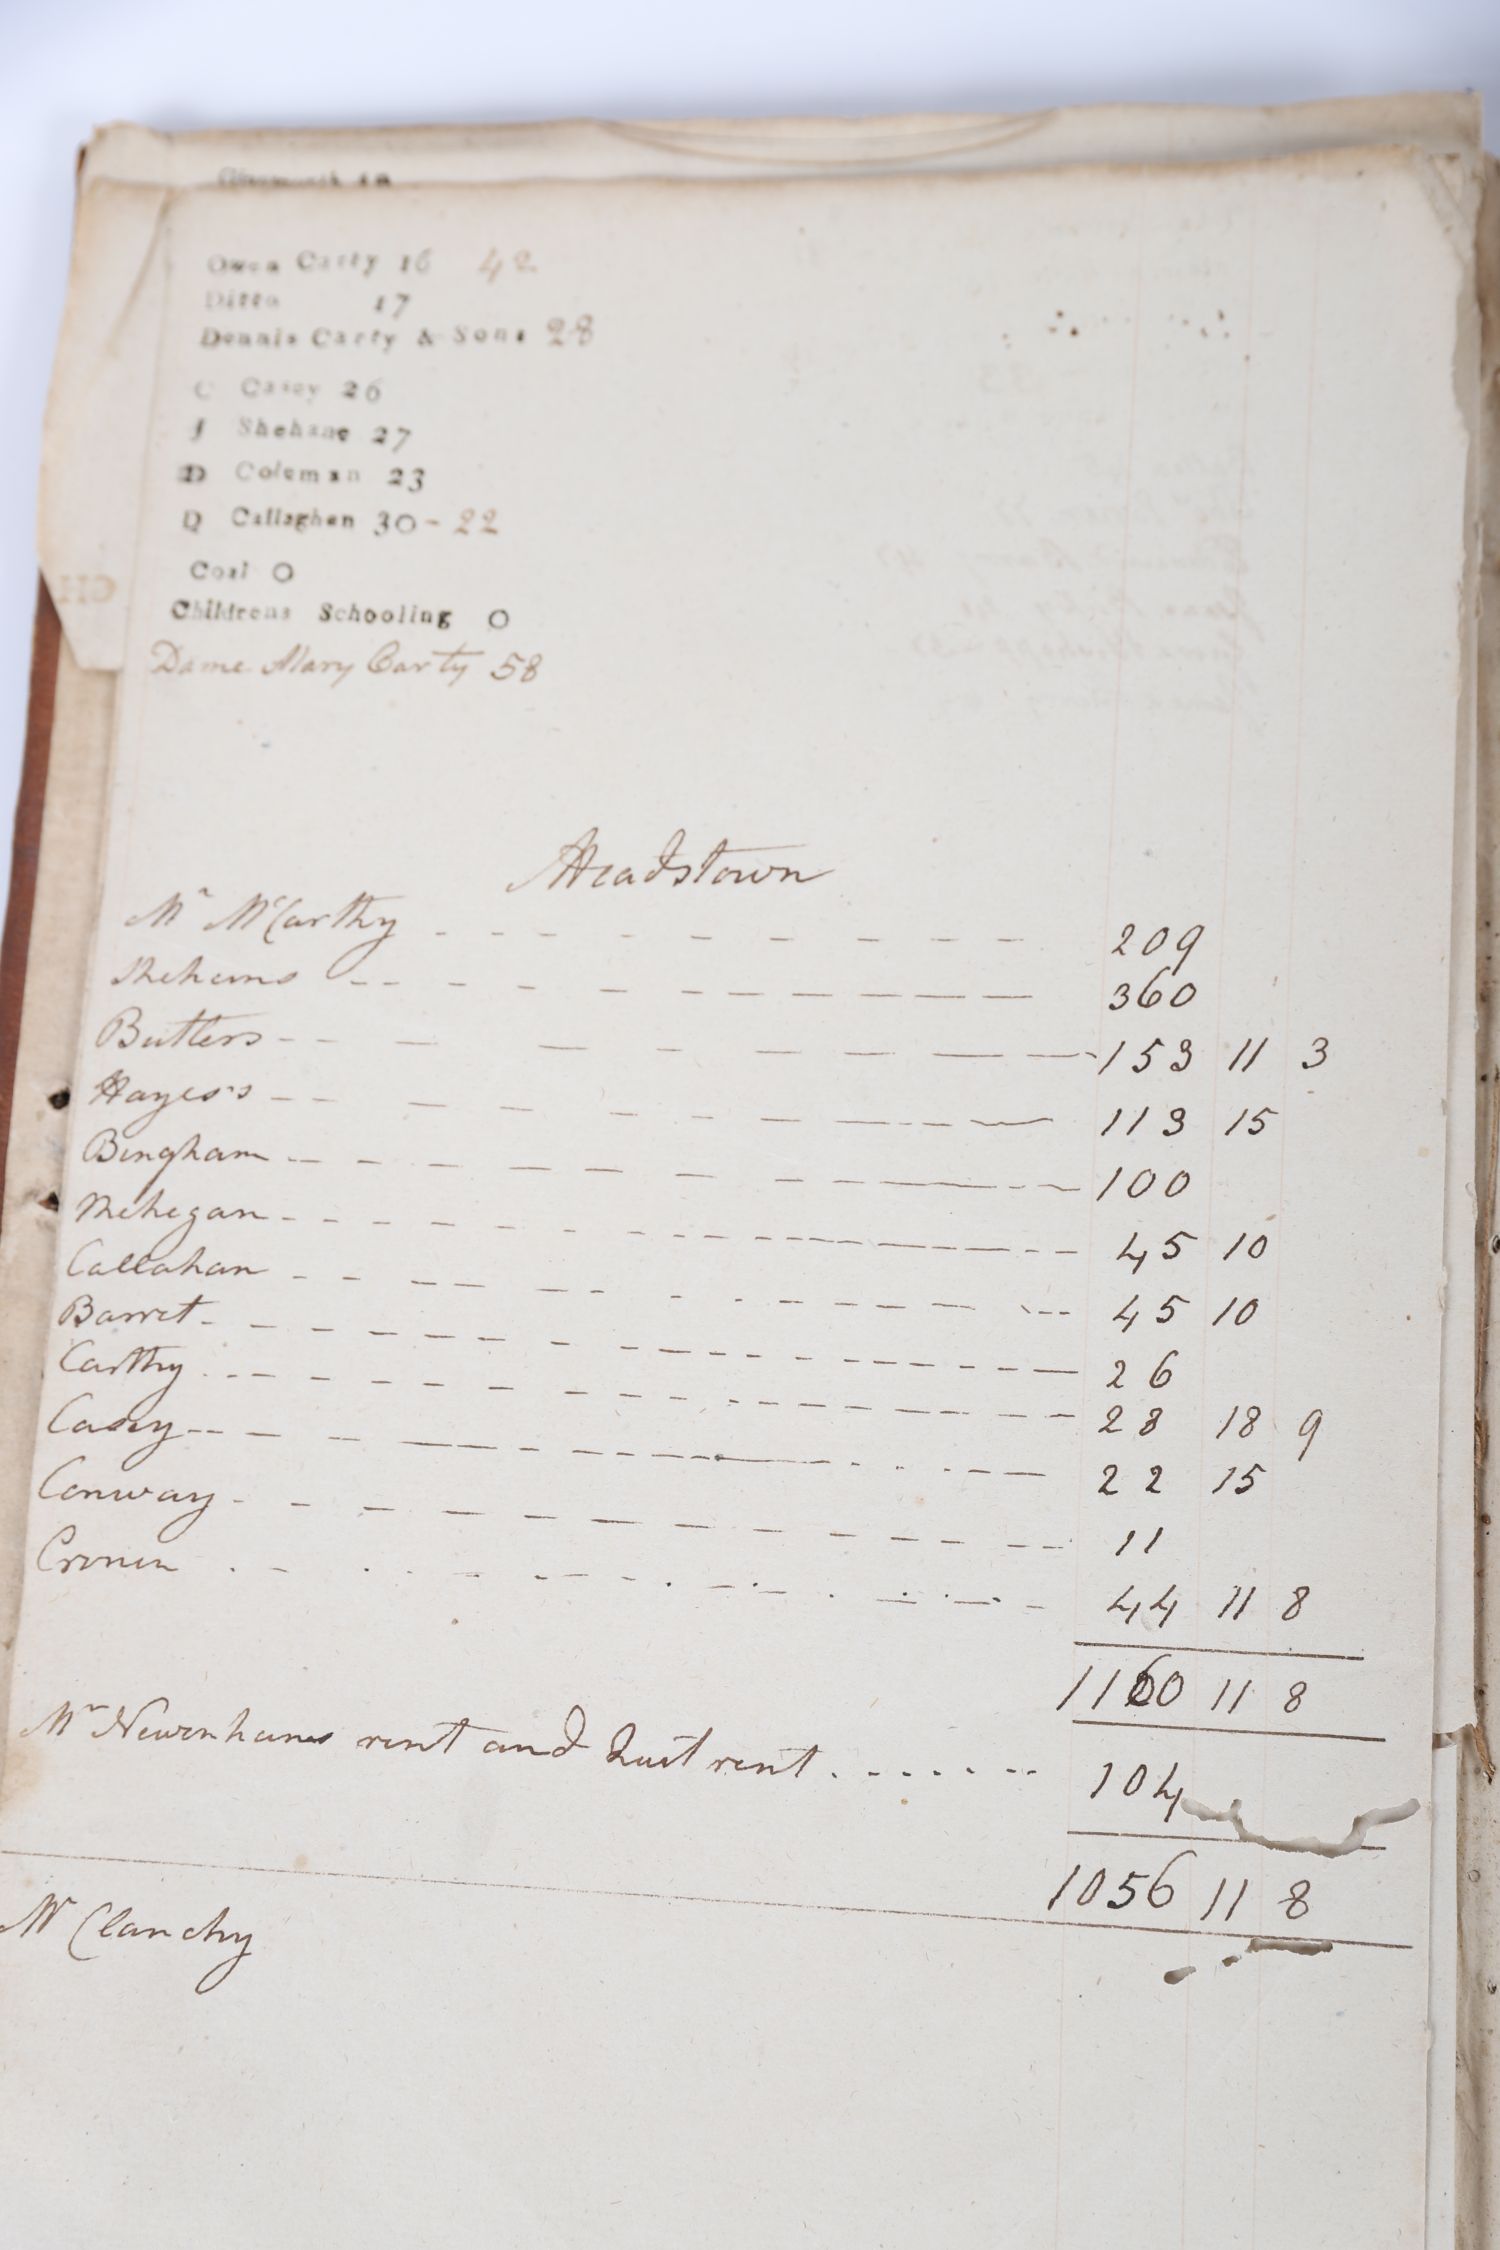 Owen Carty 16 42
Ditto 17
Dennis Carty & Sons 28
C Casey 26
J Shehane 27
D Coleman 23
D Callaghan 30 - 22
Coal O
Childrens Schooling O
Dame Mary Carty 58
Headstown
Mr McCarthy 209
360
Butlers 153 11 3
Hayes's 113 15
Bingham 100
Mehegan 45 10
Callahan 45 10
Barret 26
Carthy 28 18 9
Casey 22 15
Conway 11
Cronin 44 11 8
1160 11 8
Mr Newenhams rent and Quit rent 104
1056 11 8
Mr Clanchy